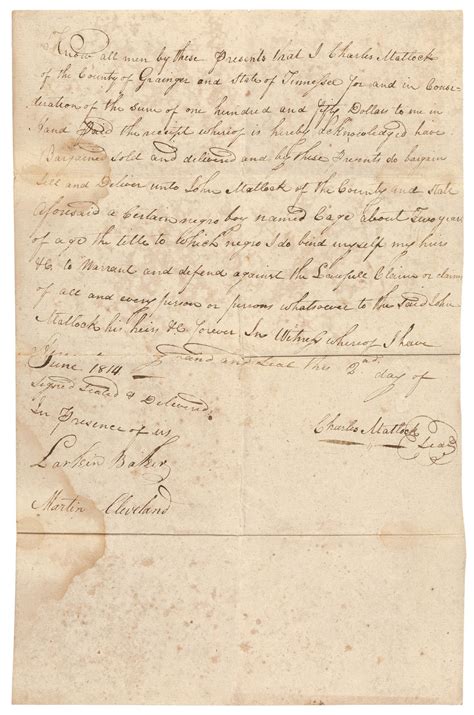 Know all men by these Presents that I Charles Matlock
of the County of Grainger and State of Tennessee for and in Consi-
deration of the Sum of one hundred and fifty Dollars to me in
hand Paid the receipt whereof is hereby acknowledged have
Bargained Sold and delivered and by these Presents do bargain
Sell and Deliver unto John Matlock of the County and state
aforesaid a Certain negro boy named Cage about Two years
of age the title to which negro I do bind myself my heirs
&C. to Warrant and defend against the Lawfull Claim or claims
of all and every person or persons whatsoever to the Said John
Matlock his heirs &C forever In Witness whereof I have
hand and Seal this 2nd day of
June 1814
Signed Sealed & Delivered
In Presence of us
Charles Matlock
Seal
Larkin Baker
Martin Cleveland